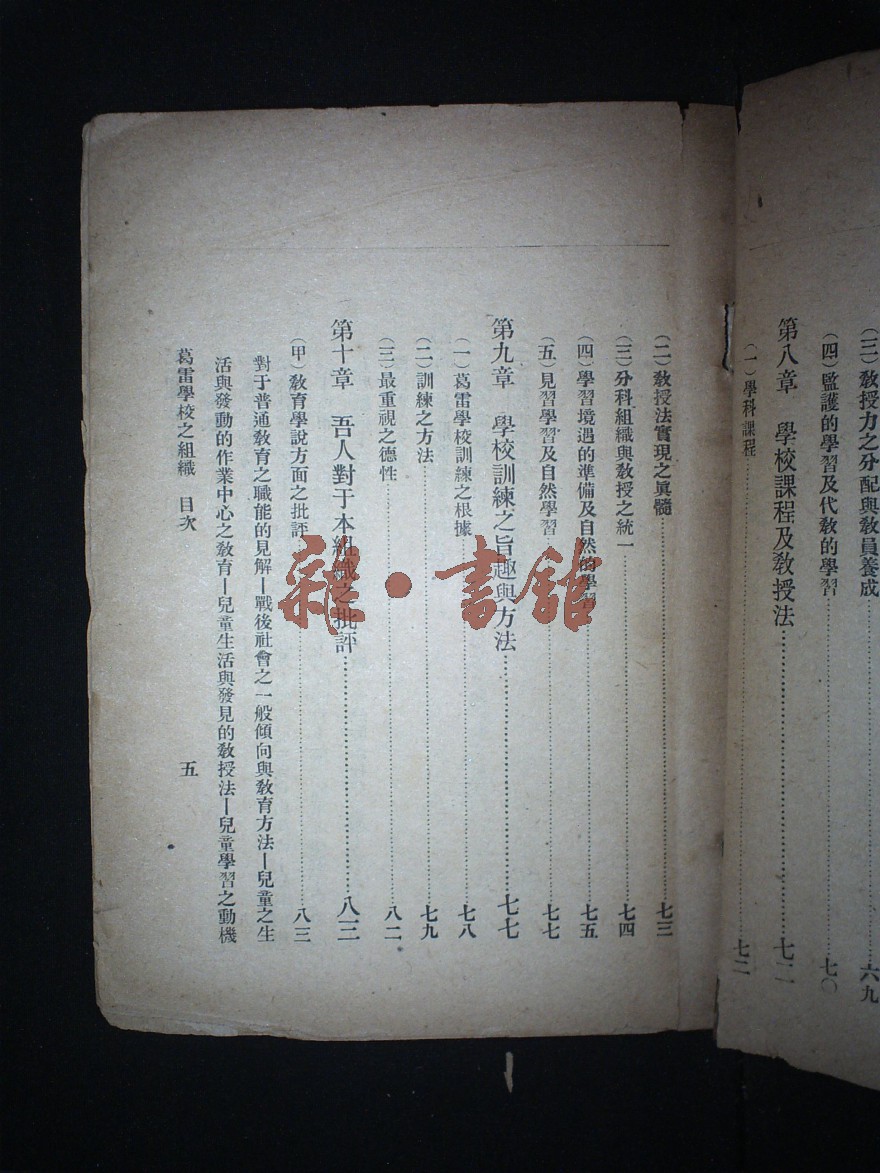 (三)教授力之分配與教員養成……六九
(四)監護的學習及代教的學習……七〇
第八章　學校課程及教授法……七二
(一)學科課程……七二
(二)教授法實現之眞髓……七三
(三)分科組織與教授之統一……七四
(四)學習境遇的準備及自然的學習……七五
(五)見習學習及自然學習……七七
第九章　學校訓練之旨趣與方法……七七
(一)葛雷學校訓練之根據……七八
(二)訓練之方法……七九
(三)最重視之德性……八二
第十章　吾人對于本組織之批評……八三
(甲)教育學說方面之批評……八三
對于普通教育之職能的見解—戰後社會之一般傾向與教育方法—兒童之生
活與發動的作業中心之教育—兒童生活與發見的教授法—兒童學習之動機
葛雷學校之組織　目次
五
雜·書館